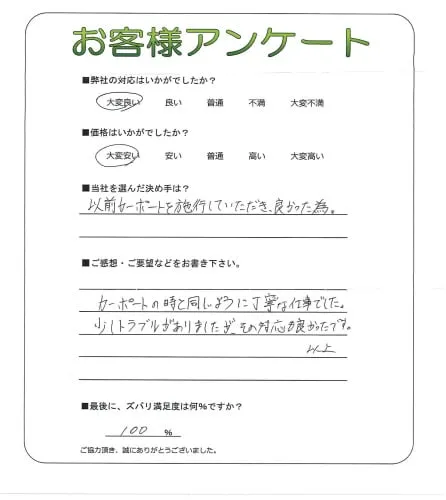 お客様アンケート
■弊社の対応はいかがでしたか？
大変良い 良い 普通 不満 大変不満
■価格はいかがでしたか？
大変安い 安い 普通 高い 大変高い
■当社を選んだ決め手は？
以前カーポートを施行していただき、良かった為。
■ご感想・ご要望などをお書き下さい。
カーポートの時と同じように丁寧な仕事でした。
少しトラブルがありましたが、その対応も良かったです。
以上
■最後に、ズバリ満足度は何%ですか？
100 %
ご協力頂き、誠にありがとうございました。